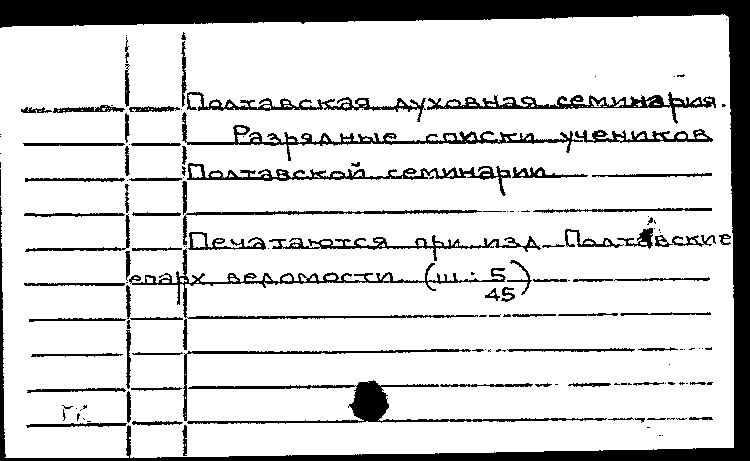 Полтавская духовная семинария.
Разрядные списки учеников
Полтавской семинарии.
Печатаются при изд. Полтавские
епарх. ведомости (ш: 5
45)
ГК